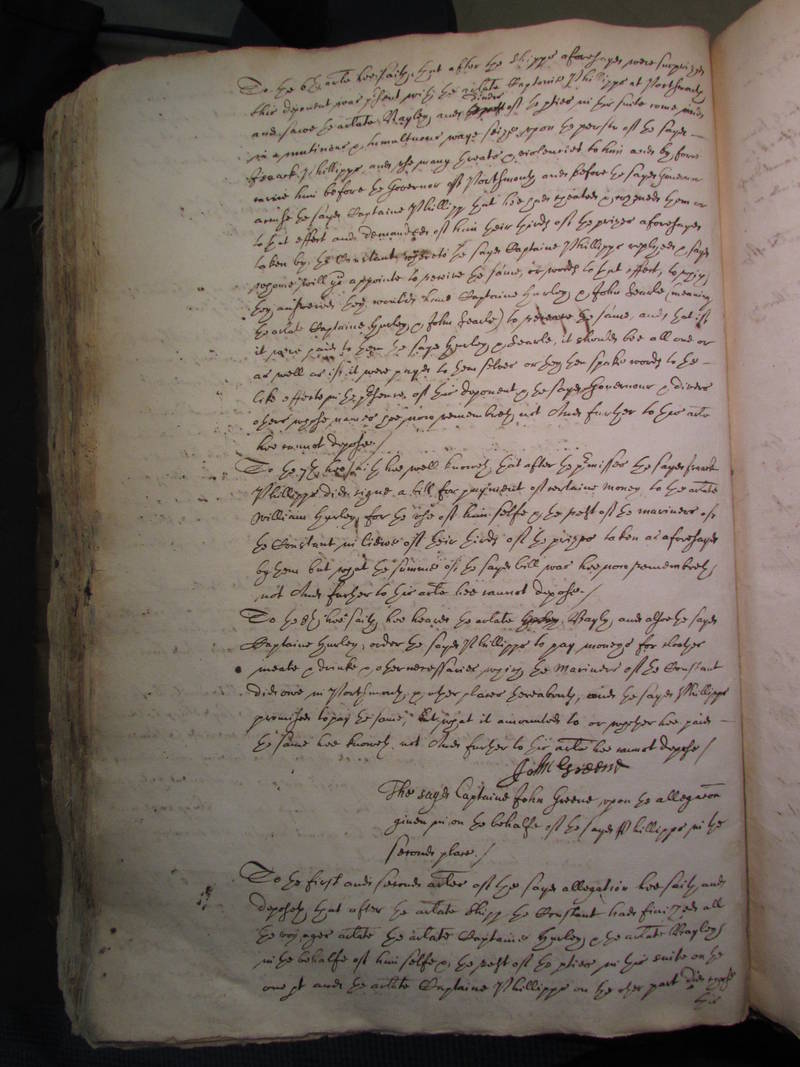 To the 6th arle hee saith, that after the shipps aforesayd were surprized
this deponent was psent with the arlate Captaine Phillipps at Portsmouth
and sawe the arlate Bayley and divers of the pties in this suite come
in a mutinous & tumultuous waye seize upon the person of the sayd
Frank Phillipps, and use many threats & violencies to him and by force
carrie him before the Governor of Portsmouth and before the sayd Governor
accuse the sayd Captaine Phillipps that hee had cheated & cozened them or
to that effect and demanded of him their thirds of the prizes aforesayd
taken by the Constant, whereto the sayd Captaine Phillipps replyed & sayd
whome will you appointe to receive the same, or words to that effect, to which
they answered they would have Captaine Hurley & John Searle (meaning
the arlate Captaine Hurley & John Searle) to receave the same, and that if
it were paid to them the sayd Hurley & Searle, it should bee all one or
as well as if it were payed to them selves or they then spake words to the
like effecte in the presence of this deponent & the sayd Governour & divers
others whose names hee now remembreth not And further to this arle
hee cannot depose./
To the 7th hee saith hee well knoweth that after the pmisses the sayd Frank
Phillipps did signe a bill for payment of certaine money to the arlate
William Hurley for the use of him selfe & the rest of the mariners of
the Constant in liewe of their thirds of the prizes taken as aforesayd
by them but what the summe of the sayd bill was hee now remembreth
not And further to this arle hee cannot depose./
To the 8th hee saith, hee heard the arlate Bayly and alsoe the sayd
Captaine Hurley, order the sayd Phillipps to pay moneys for
meate & drinke & other necessaries which the Mariners of the Constant
did owe in Portsmouth, & other places thereabouts, and the sayd Phillipps
promised to pay the same, but what it amounted to or whether hee paid
the same hee knoweth not And further to this arle hee cannot depose/
John Greene
The sayd Captaine John Greene upon the allegacon
given in on the behalfe of the sayd Phillipps in the
second place./
To the first and second arles of the sayd allegation hee saith and
deposeth that after the arlate shipp the Constant had finished all
the voyages arlate the arlate Captaine Hurley & the arlate Bayley
in the behalfe of him selfe & the rest of the pties in this suite on the
one pt and the arlate Captaine Phillipps on the other part did
the